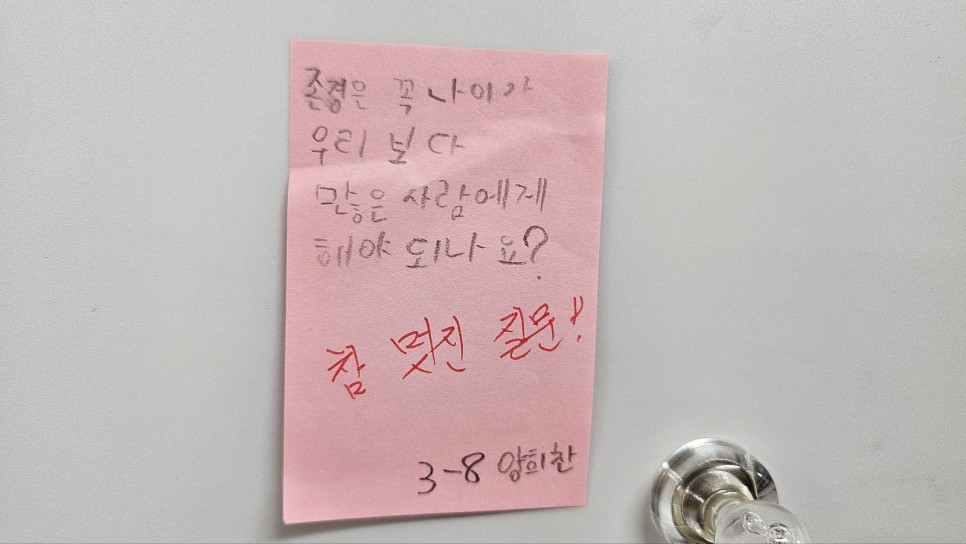 존경은 꼭 나이가
우리 보다
많은 사람에게
해야 되나요?
참 멋진 질문!!
3-8 양희찬